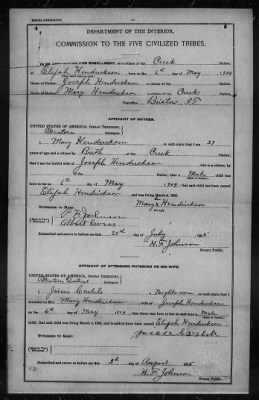 BIRTH AFFIDAVIT.
DEPARTMENT OF THE INTERIOR,
COMMISSION TO THE FIVE CIVILIZED TRIBES.
FOR ENROLLMENT, as a citizen of the Creek Nation,
of Elijah Hendrickson, born on the 6th day of May, 1904
Name of Father: Joseph Hendrickson
Name of Mother: Mary Hendrickson a citizen of the Creek Nation.
Postoffice Bristow I.T.
AFFIDAVIT OF MOTHER.
UNITED STATES OF AMERICA, INDIAN TERRITORY,
Western District.
I, Mary Hendrickson, on oath state that I am 29
years of age and a citizen by Birth, of the Creek Nation;
that I am the lawful wife of Joseph Hendrickson, who is a citizen, by
of the Nation; that a Male child was
born to me on 6th day of May, 1904, that said child has been named
Elijah Hendrickson, and was living March 4, 1905.
Mary Hendrickson
WITNESSES TO MARK:
Subscribed and sworn to before me this 20th day of July, 1905.
H.F. Johnson
Notary Public.
AFFIDAVIT OF ATTENDING PHYSICIAN OR MID-WIFE.
UNITED STATES OF AMERICA, INDIAN TERRITORY,
Western District.
I, Josie Carlile, a Midwife, on oath state that I
attended on Mrs. Mary Hendrickson, wife of Joseph Hendrickson
on the 6th day of May, 1904; that there was born to her on said date a Male
child; that said child was living March 4, 1905, and is said to have been named Elijah Hendrickson
WITNESSES TO MARK:
Subscribed and sworn to before me this 3d day of August, 1905.
H.F. Johnson
Notary Public.